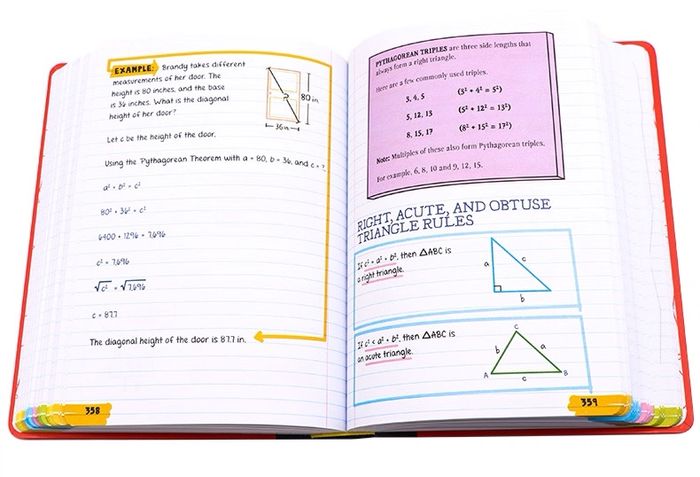 EXAMPLE: Brandy takes different
measurements of her door. The
height is 80 inches, and the base
is 36 inches. What is the diagonal
height of her door?
?
80 in.
36 in.
Let c be the height of the door.
Using the Pythagorean Theorem with a = 80, b = 36, and c = ?
a² + b² = c²
80² + 36² = c²
6400 + 1296 = 7,696
c² = 7,696
√c² = √7,696
c = 87.7
The diagonal height of the door is 87.7 in.
358
PYTHAGOREAN TRIPLES are three side lengths that
always form a right triangle.
Here are a few commonly used triples.
3, 4, 5 (3² + 4² = 5²)
5, 12, 13 (5² + 12² = 13²)
8, 15, 17 (8² + 15² = 17²)
Note: Multiples of these also form Pythagorean triples.
For example, 6, 8, 10 and 9, 12, 15.
RIGHT, ACUTE, AND OBTUSE
TRIANGLE RULES
If c² = a² + b², then △ABC is
a right triangle.
a
c
b
If c² < a² + b², then △ABC is
an acute triangle.
C
b
a
A
c
B
359